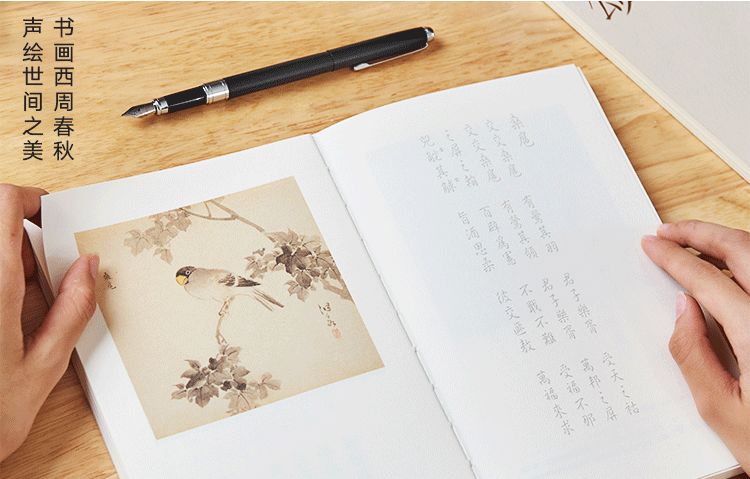 书画西周春秋
声绘世间之美
桑扈
交交桑扈 有鶯其羽 君子樂胥 受天之祜
交交桑扈 有鶯其領 君子樂胥 萬邦之屏
之屏之翰 百辟為憲 不戢不難 受福不那
兕觥其觩 旨酒思柔 彼交匪敖 萬福來求